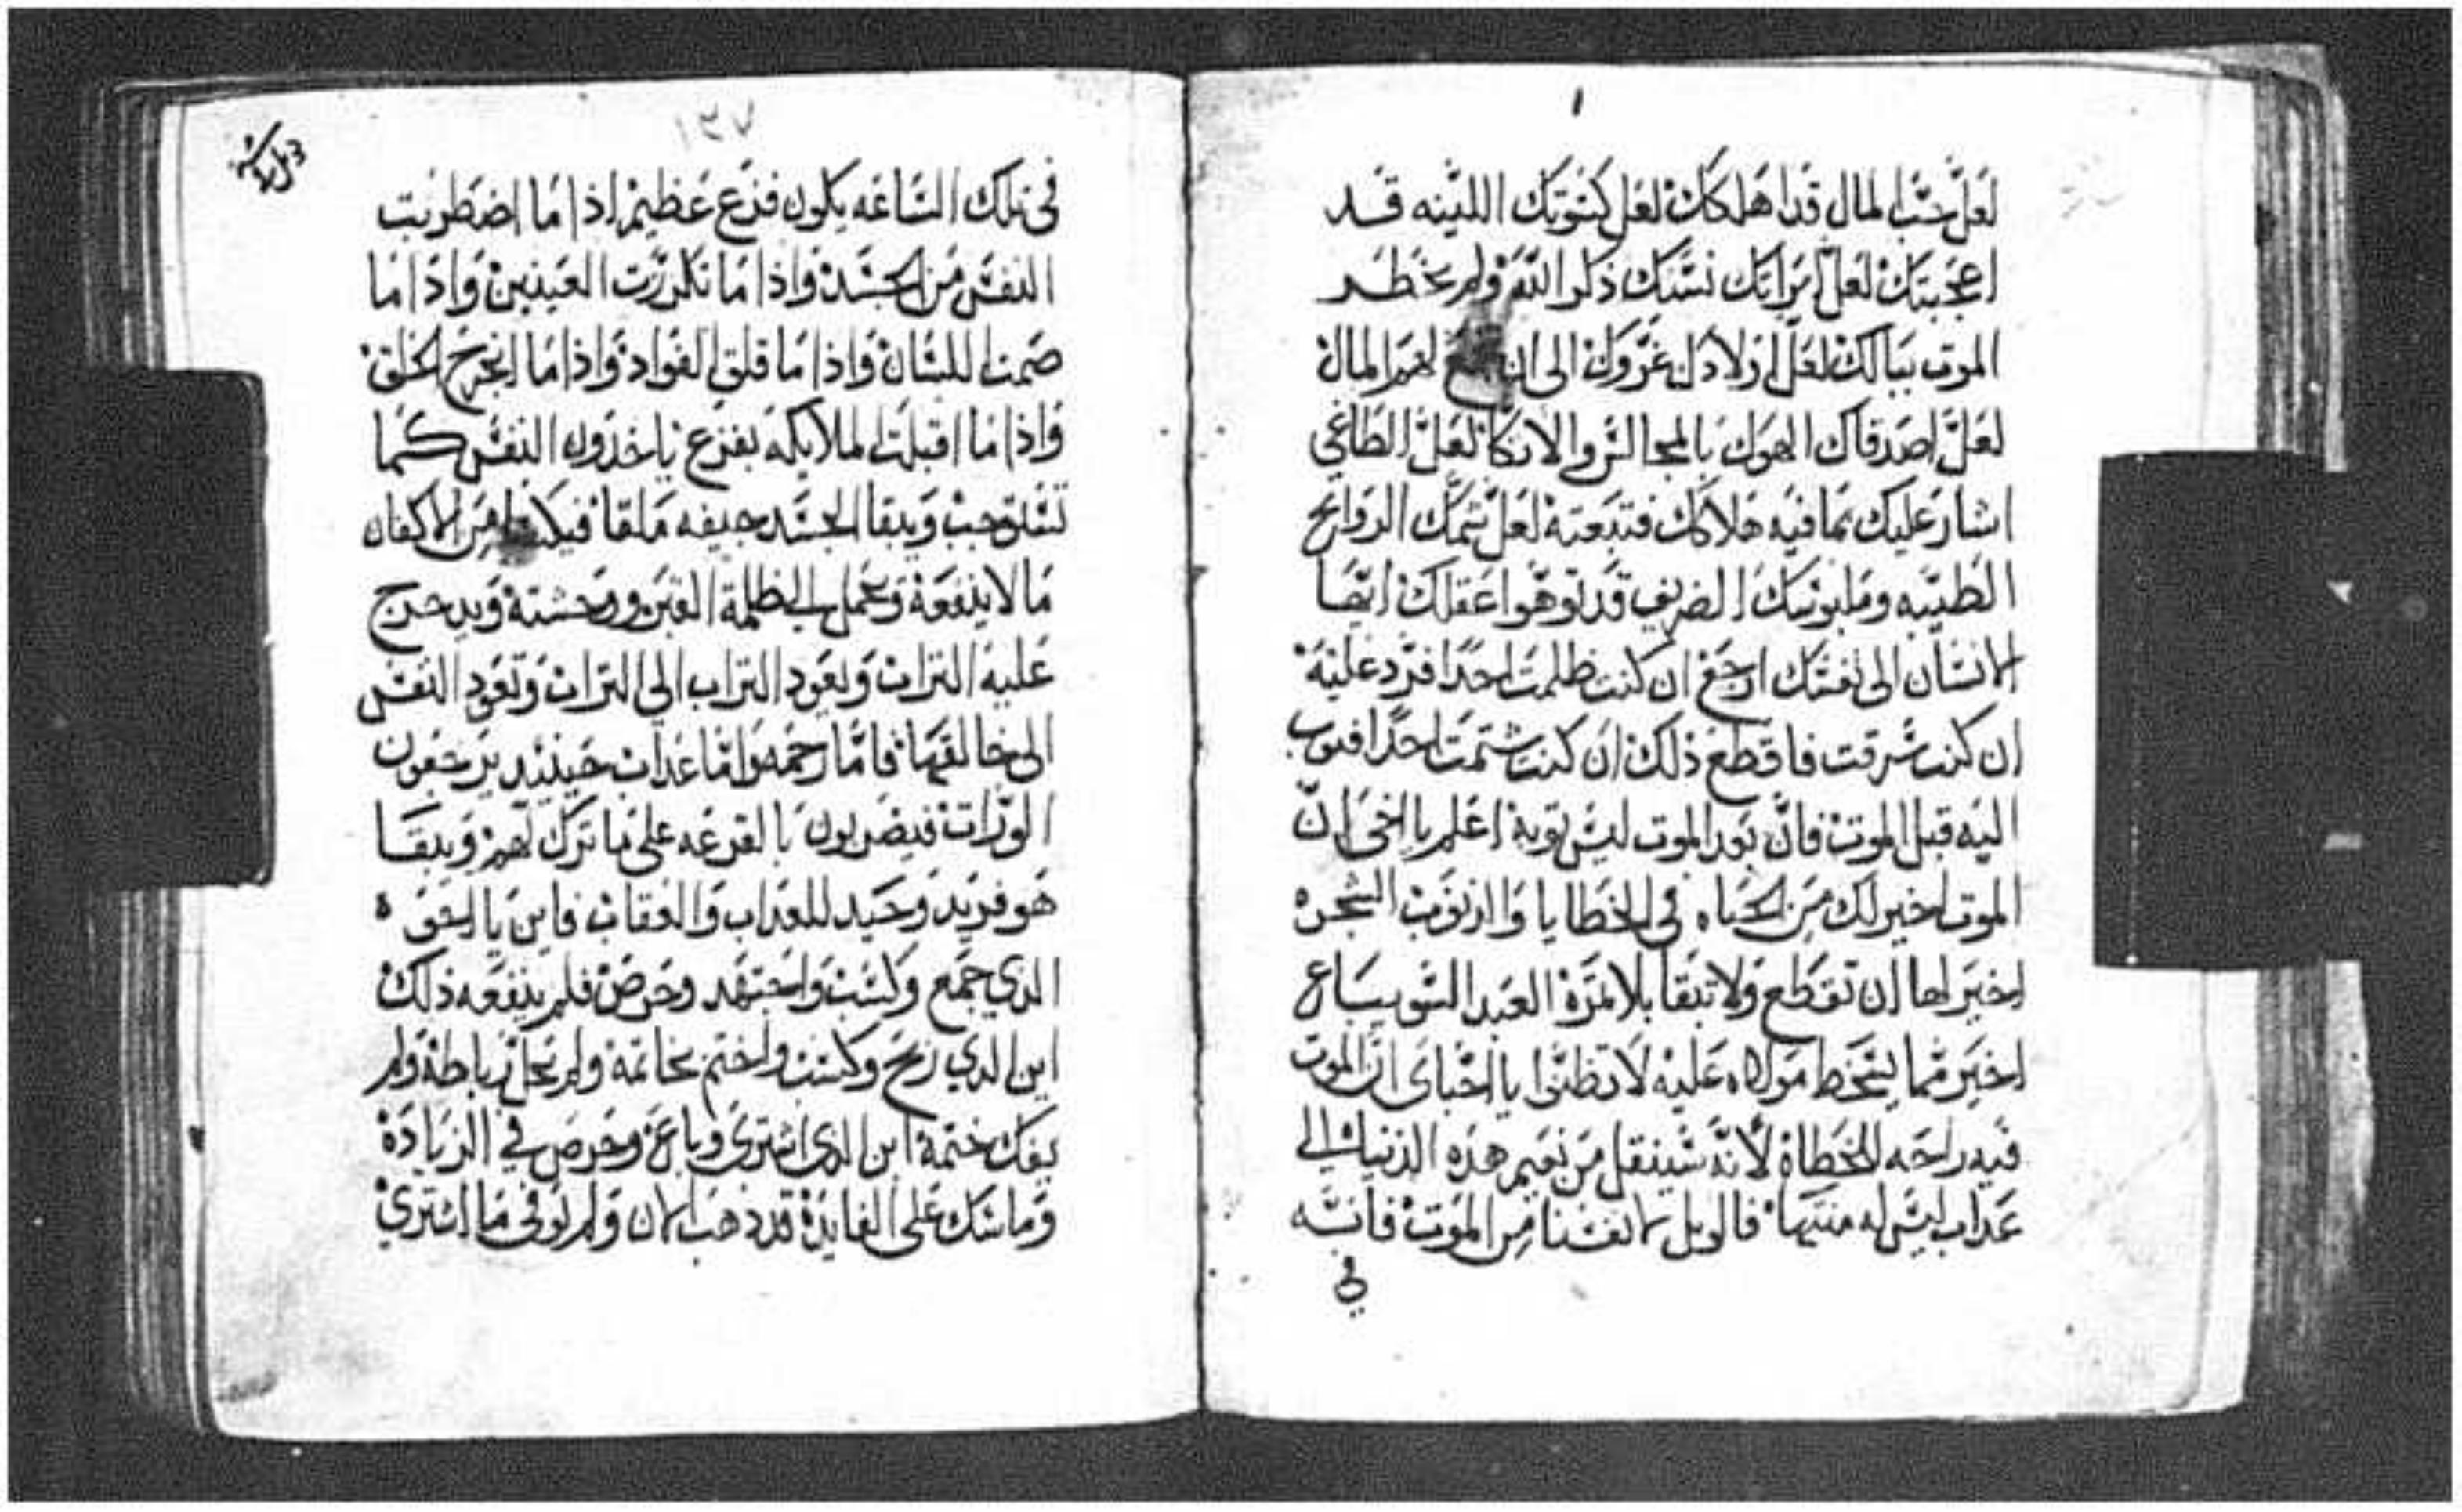 لعلّ حبّ المال قد اهلكك لعل كسوتك اللينه قد
اعجبتك لعلّ تزاتك نسّيك ذكر الله ولم يخطر
الموت ببالك لعلّ اولادك غرّوك الى ان لهم المال
لعلّ اصدقاك الهوك بالمجالس والاتكا لعلّ الطاغي
اشار عليك بما فيه هلاكك فتبعته لعل شمّك الروايح
الطيّبه وملبوسك الضريف قد توهوا عقلك ايها
الانسان الى نفسك ارجع ان كنت ظلمت احدًا فردّ عليه
ان كنت سرقت فاقطع ذلك ان كنت شتمت احدًا فتوب
اليه قبل الموت فانّ بعد الموت ليس توبة اعلم يا اخي انّ
الموت اخير لك من الحياه في الخطايا والذنوب الشجره
اخير لها ان تقطع ولا تبقا بلا ثمرة العبد السّو يباع
اخير ممّا يسخط مولاه عليه لا تظنّوا يا احباى انّ الموت
فيه راحه للخطاة لانّه سينقل من نعيم هذه الدنيا الى
عذاب ليس له منتها فالويل لانفسنا من الموت فانّه
في
١٣٧
في تلك الساعه يكون فزع عظيم اذا ما اضطربت
النفس من الجسد واذا ما تكررت العينين واذا ما
صمت اللسان واذا ما قلق الفواد واذا ما انجرح الحلق
واذا ما اقبلت الملايكه بفزع ياخذون النفس كما
تستوجب ويبقا الجسد جيفه ملقا من الاكفان
ما لا ينفعه وعمل الى ظلمة القبر ووحشته ويدحرج
عليه التراب ويعود التراب الى التراب وتعود النفس
الى خالقها فامّا رحمه وامّا عذاب حينئذ يرجعون
الورّاث فيضربون بالقرعه على ما ترك لهم ويبقا
هو فريد وحيد للعذاب والعقاب فاين يا اخوه
الذي جمع وكسب واجتهد وحرص فلم ينفعه ذلك
اين الذي ربح وكسب واختم بخاتمه ولم يحل رباطه ولم
يفك ختمه اين الذي اشترى وباع وحرص في الزيادة
وماسك على الفايدة قد ذهب الان ولم يوفى ما اشترى